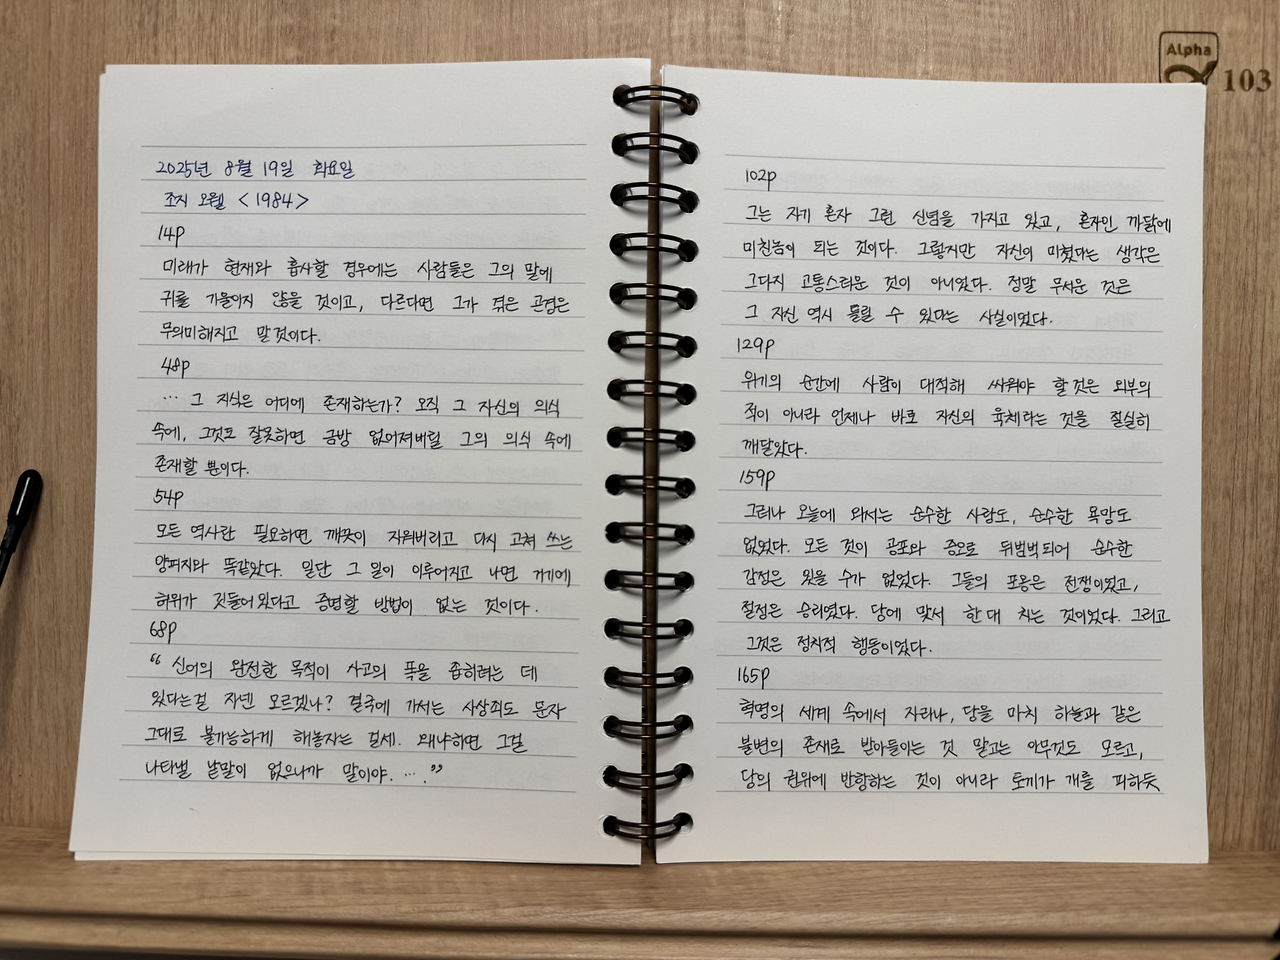 2025년 8월 19일 화요일
조지 오웰 <1984>
14p
미래가 현재와 흡사할 경우에는 사람들은 그의 말에
귀를 기울이지 않을 것이고, 다르다면 그가 겪은 곤경은
무의미해지고 말 것이다.
48p
… 그 지식은 어디에 존재하는가? 오직 그 자신의 의식
속에, 그것도 잘못하면 금방 없어져버릴 그의 의식 속에
존재할 뿐이다.
54p
모든 역사란 필요하면 깨끗이 지워버리고 다시 고쳐 쓰는
양피지와 똑같았다. 일단 그 일이 이루어지고 나면 거기에
허위가 깃들어있다고 증명할 방법이 없는 것이다.
68p
“ 신어의 완전한 목적이 사고의 폭을 좁히려는 데
있다는걸 자넨 모르겠나? 결국에 가서는 사상죄도 문자
그대로 불가능하게 해놓자는 걸세. 왜냐하면 그걸
나타낼 낱말이 없으니까 말이야. … .”
102p
그는 자기 혼자 그런 신념을 가지고 있고, 혼자인 까닭에
미친놈이 되는 것이다. 그렇지만 자신이 미쳤다는 생각은
그다지 고통스러운 것이 아니었다. 정말 무서운 것은
그 자신 역시 틀릴 수 있다는 사실이었다.
129p
위기의 순간에 사람이 대적해 싸워야 할것은 외부의
적이 아니라 언제나 바로 자신의 육체라는 것을 절실히
깨달았다.
159p
그러나 오늘에 와서는 순수한 사랑도, 순수한 욕망도
없었다. 모든 것이 공포와 증오로 뒤범벅되어 순수한
감정은 있을 수가 없었다. 그들의 포옹은 전쟁이었고,
절정은 승리였다. 당에 맞서 한대 치는 것이었다. 그리고
그것은 정치적 행동이었다.
165p
혁명의 세계 속에서 자라나, 당을 마치 하늘과 같은
불변의 존재로 받아들이는 것 말고는 아무것도 모르고,
당의 권위에 반항하는 것이 아니라 토끼가 개를 피하듯
Alpha
103